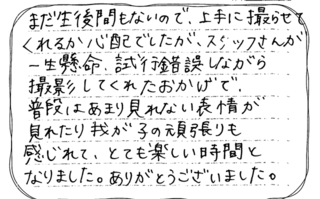 まだ生後間もないので、上手に撮らせて
くれるか心配でしたが、スタッフさんが
一生懸命、試行錯誤しながら
撮影してくれたおかげで、
普段はあまり見れない表情が
見れたり我が子の頑張りも
感じれて、とても楽しい時間と
なりました。ありがとうございました。